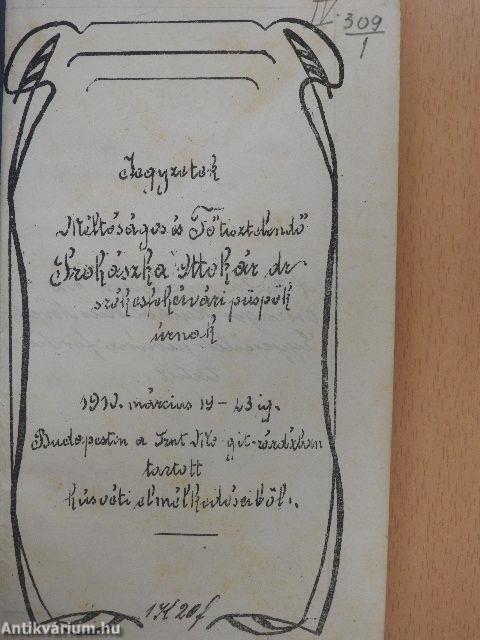 IV. 309
1
Jegyzetek
Méltóságos és Főtisztelendő
Prohászka Ottokár dr
székesfehérvári püspök
úrnak
március 19–23 ig.
Budapesten a
tartott
húsvéti elmélkedéseiből.
1K 20f
Antikvárium.hu